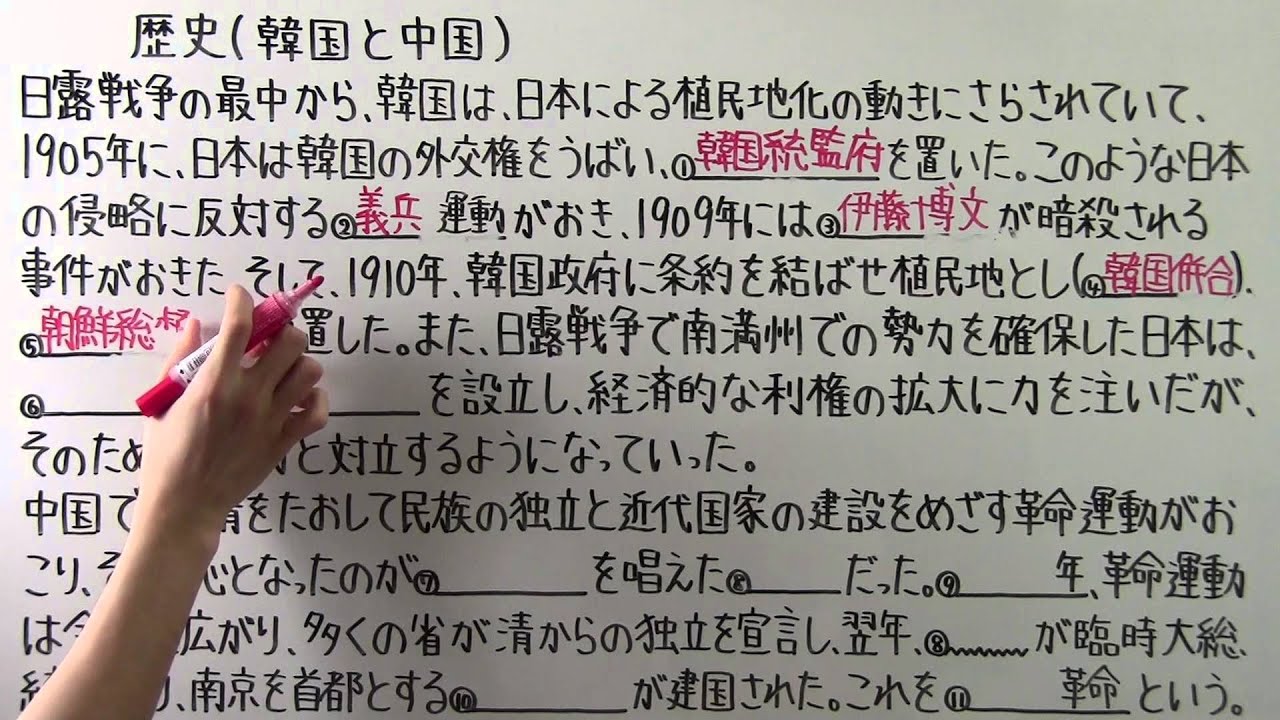 歴史(韓国と中国)
日露戦争の最中から、韓国は、日本による植民地化の動きにさらされていて、
1905年に、日本は韓国の外交権をうばい、①韓国統監府を置いた。このような日本
の侵略に反対する②義兵 運動がおき、1909年には③伊藤博文が暗殺される
事件がおきた そして、1910年、韓国政府に条約を結ばせ植民地とし(④韓国併合)、
⑤朝鮮総 置した。また、日露戦争で南満州での勢力を確保した日本は、
⑥ を設立し、経済的な利権の拡大に力を注いだが、
そのため と対立するようになっていった。
中国で 清をたおして民族の独立と近代国家の建設をめざす革命運動がお
こり、そ 心となったのが⑦ を唱えた⑧ だった。⑨ 年、革命運動
は全 広がり、多くの省が清からの独立を宣言し、翌年、⑧ が臨時大総
統 り、南京を首都とする⑩ が建国された。これを⑪ 革命という。